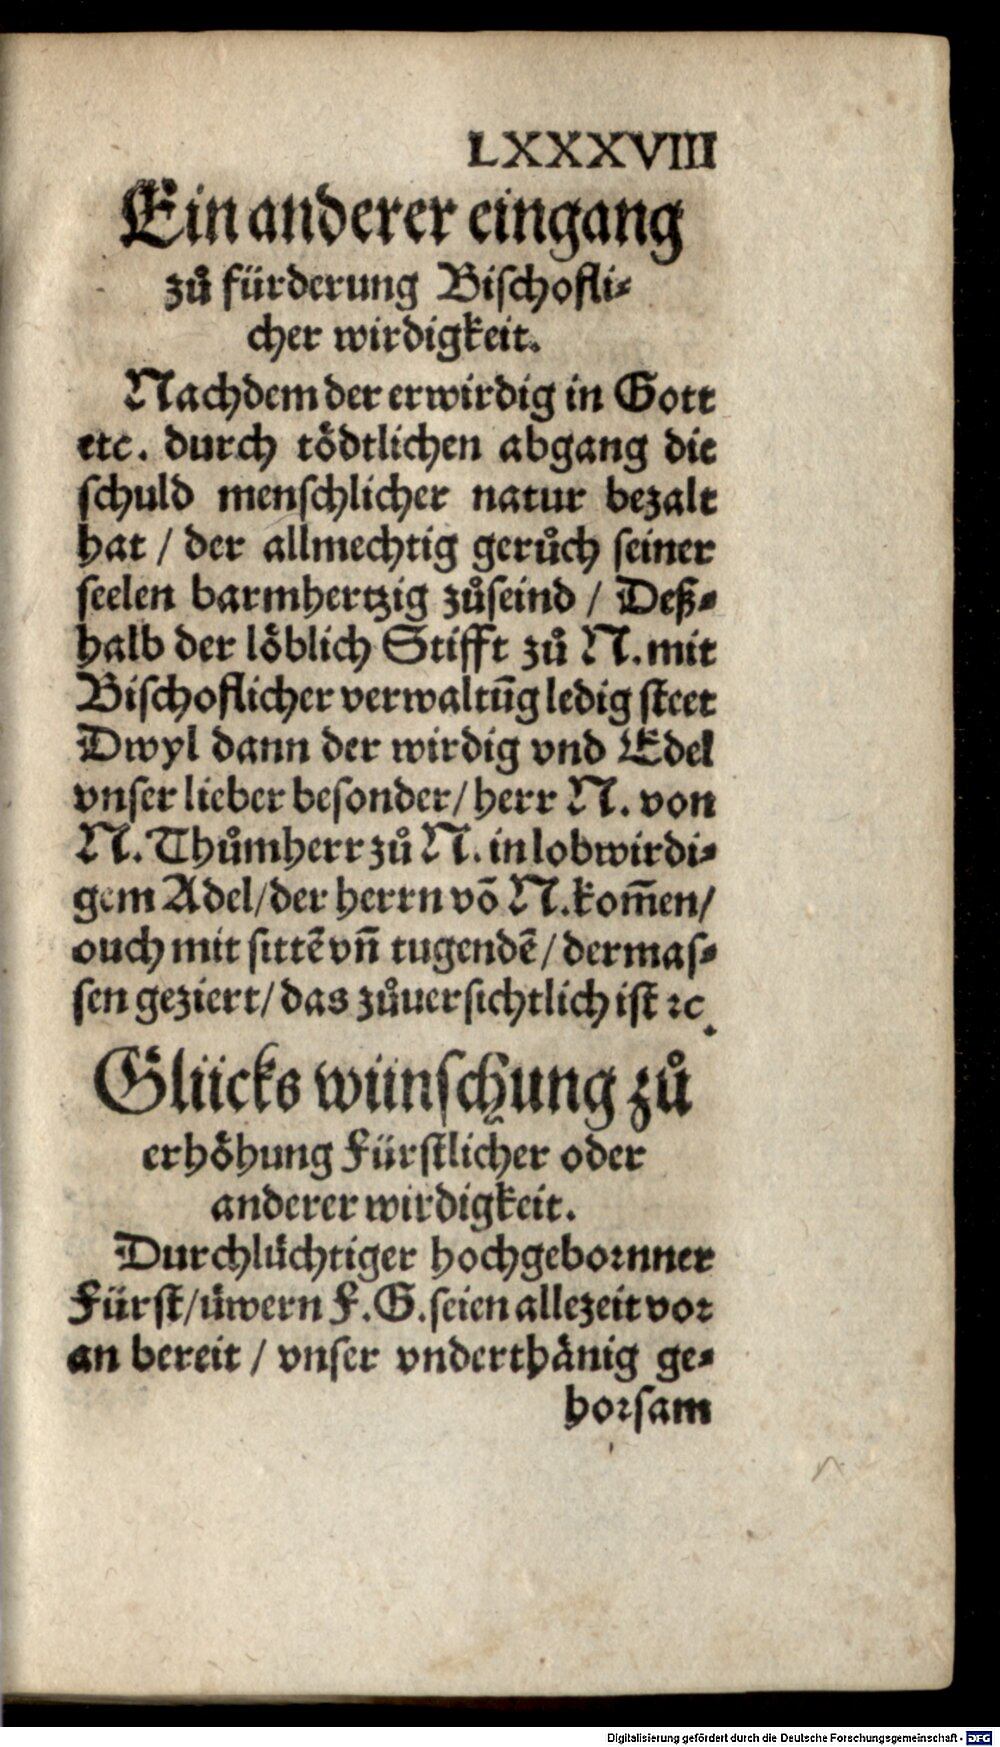 LXXXVIII
Ein anderer eingang
zů fürderung Bischofli⸗
cher wirdigkeit.
Nachdem der erwirdig in Gott
etc. durch tödtlichen abgang die
schuld menschlicher natur bezalt
hat / der allmechtig gerůch seiner
seelen barmhertzig zůseind / Deß⸗
halb der löblich Stifft zů N. mit
Bischoflicher verwaltūg ledig steet
Dwyl dann der wirdig vnd Edel
vnser lieber besonder / herr N. von
N. Thůmherr zů N. in lobwirdi⸗
gem Adel / der herrn vō N. kom̄en /
ouch mit sittē vn̄ tugendē / dermas⸗
sen geziert / das zůuersichtlich ist ꝛc.
Glücks wünschung zů
erhöhung Fürstlicher oder
anderer wirdigkeit.
Durchlüchtiger hochgebornner
Fürst / üwern F. G. seien allezeit vor
an bereit / vnser vnderthänig ge⸗
horsam
Digitalisierung gefördert durch die Deutsche Forschungsgemeinschaft - DFG